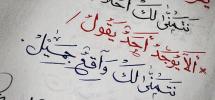 نَتَمَنَّى لَكَ
* أَلَا يُوجَدُ أَحَدٌ يَقُولُ:
نَتَمَنَّى لَكَ وَاقِعٌ جَمِيلٌ.